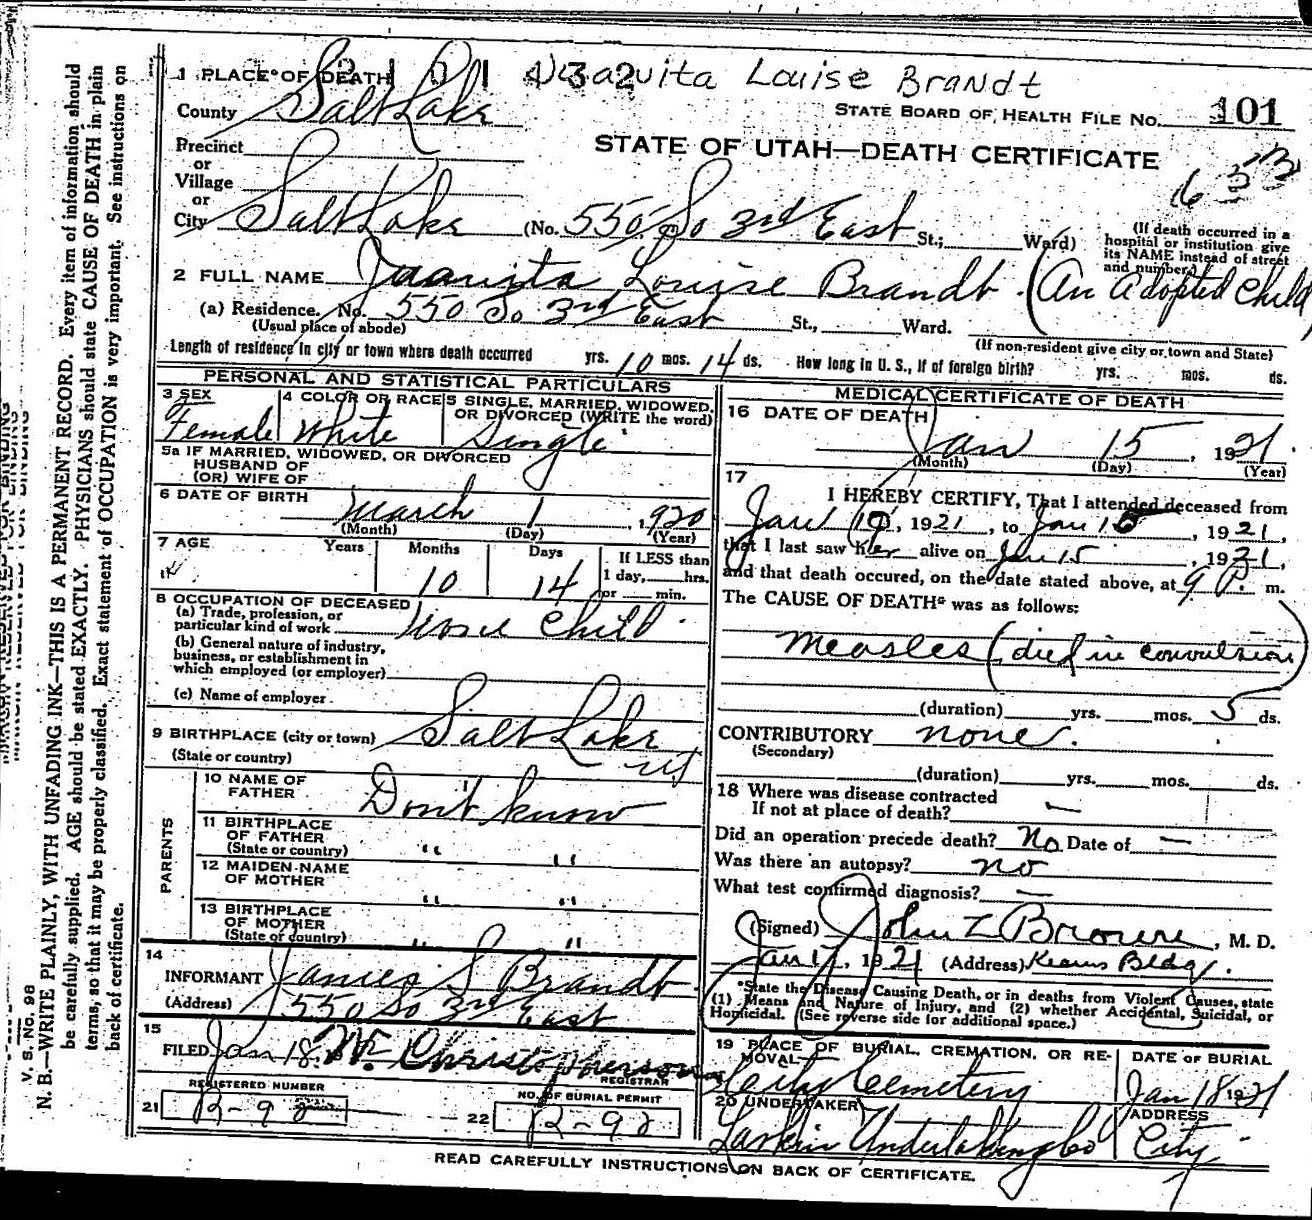 1 PLACE OF DEATH
Juanita Louise Brandt
County Salt Lake
STATE BOARD OF HEALTH FILE NO. 101
Precinct
STATE OF UTAH—DEATH CERTIFICATE
or
Village
or
City Salt Lake (No. 550 So 3rd East St.; Ward)
(If death occurred in a
hospital or institution give
its NAME instead of street
and number.)
2 FULL NAME Juanita Louise Brandt. (An Adopted Child)
(a) Residence. No. 550 So 3rd East St., Ward.
(Usual place of abode)
(If non-resident give city or town and State)
Length of residence in city or town where death occurred yrs. 10 mos. 14 ds. How long in U. S., if of foreign birth? yrs. mos. ds.
PERSONAL AND STATISTICAL PARTICULARS
3 SEX Female
4 COLOR OR RACE White
5 SINGLE, MARRIED, WIDOWED,
OR DIVORCED (WRITE the word)
Single
5a IF MARRIED, WIDOWED, OR DIVORCED
HUSBAND OF
(OR) WIFE OF
6 DATE OF BIRTH March 1, 1920
(Month) (Day) (Year)
7 AGE Years Months Days If LESS than
10 14 1 day, hrs.
or min.
8 OCCUPATION OF DECEASED
(a) Trade, profession, or
particular kind of work Child
(b) General nature of industry,
business, or establishment in
which employed (or employer)
(c) Name of employer
9 BIRTHPLACE (city or town) Salt Lake
(State or country) Ut
PARENTS
10 NAME OF
FATHER Don't know
11 BIRTHPLACE
OF FATHER
(State or country) " "
12 MAIDEN NAME
OF MOTHER " "
13 BIRTHPLACE
OF MOTHER
(State or country) " "
14
INFORMANT James S Brandt
(Address) 550 So 3rd East
15
FILED Jan 18. W. Christopherson
REGISTRAR
REGISTERED NUMBER
21 B-92
NO. OF BURIAL PERMIT
22 B-92
MEDICAL CERTIFICATE OF DEATH
16 DATE OF DEATH
Jan 15, 1921.
(Month) (Day) (Year)
17
I HEREBY CERTIFY, That I attended deceased from
Jan 10, 1921, to Jan 15, 1921,
that I last saw her alive on Jan 15, 1921,
and that death occured, on the date stated above, at 9 P. m.
The CAUSE OF DEATH* was as follows:
Measles (died in convulsions)
(duration) yrs. mos. 5 ds.
CONTRIBUTORY none.
(Secondary)
(duration) yrs. mos. ds.
18 Where was disease contracted
If not at place of death? —
Did an operation precede death? No Date of —
Was there an autopsy? no
What test confirmed diagnosis? —
(Signed) John Z Brown, M. D.
Jan 17, 1921 (Address) Kearns Bldg.
*State the Disease Causing Death, or in deaths from Violent Causes, state
(1) Means and Nature of Injury, and (2) whether Accidental, Suicidal, or
Homicidal. (See reverse side for additional space.)
19 PLACE OF BURIAL, CREMATION, OR RE-
MOVAL
City Cemetery
DATE OF BURIAL
Jan 18 1921
20 UNDERTAKER
Larkin Undertaking Co
ADDRESS
City
READ CAREFULLY INSTRUCTIONS ON BACK OF CERTIFICATE.
V. S. No. 98
N. B.—WRITE PLAINLY, WITH UNFADING INK—THIS IS A PERMANENT RECORD. Every item of information should
be carefully supplied. AGE should be stated EXACTLY. PHYSICIANS should state CAUSE OF DEATH in plain
terms, so that it may be properly classified. Exact statement of OCCUPATION is very important. See instructions on
back of certificate.